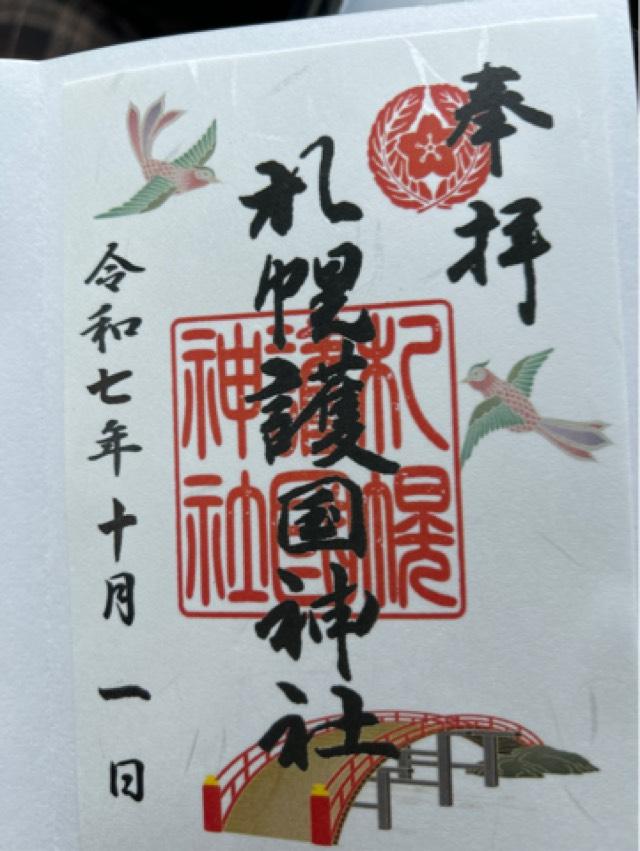 奉拝
札幌護国神社
札幌
護國
神社
令和七年十月一日